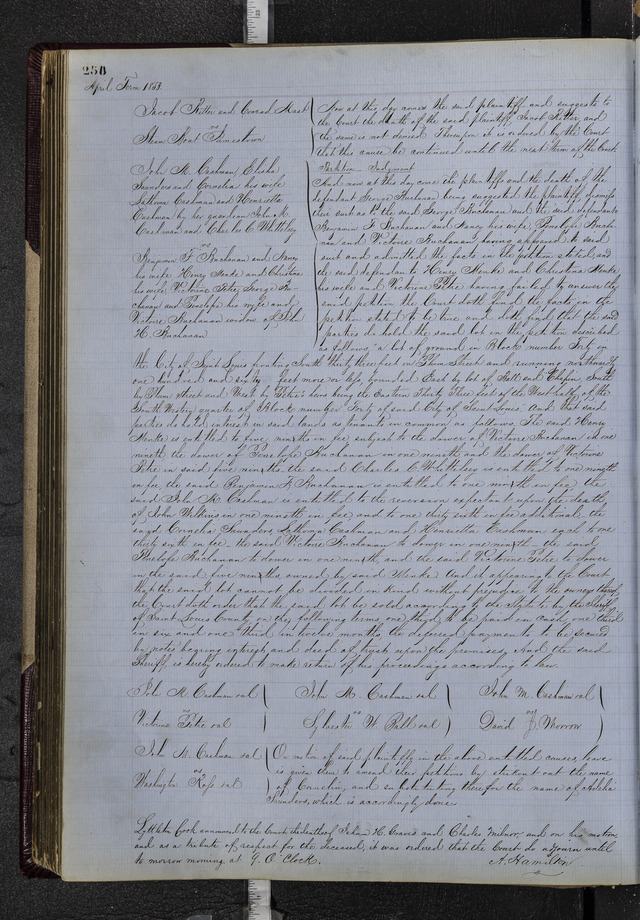 250
April Term 1863
Jacob Ritter and Conrad
vs
Steam Boat Jamestown
Now at this day comes the said plaintiff and suggests to
the Court the death of the said plaintiff Jacob Ritter and
the same is not denied. Thereupon it is ordered by the Court
that this cause be continued until the next term of the Court
John M. Cashman
Saunders and Cornelia his wife
Cashman and Henrietta
Cashman by her guardian John M.
Cashman and Charles C. Whittlesy
vs
Benjamin F. Buchanan and Nancy
his wife Henry Menke and Christina
his wife Victoire Petre George Bu-
chanan and Penelope his wife and
Victoire Buchanan widow of John
H. Buchanan
Partition Judgment
And now at this day come the plaintiffs and the death of the
defendant George Buchanan being suggested the plaintiff dismiss
their suit as to the said George Buchanan and the said defendants
Benjamin F. Buchanan and Nancy his wife, Penelope Bucha-
nan and Victoire Buchanan having appeared to said
suit and admitted the facts in the petition stated, and
the said defendants Henry Menke and Christina Menke
his wife and Victoire Petre having failed to answer the
said petition the Court doth find the facts in the
petition stated to be true and doth find that the said
parties do hold the said lot in the petition described
as follows "a lot of ground in Block number Forty in
the City of Saint Louis fronting South thirty three feet on Plum Street and running northwardly
one hundred and sixty feet more or less, bounded East by lot of Hall and Chapin, South
by Plum street and West by Petre's heirs being the Eastern Thirty Three feet of the West half of the
South West quarter of Block number Forty of said City of Saint Louis. And that said
parties do hold interest in said lands as tenants in common as follows. The said Henry
Menke is entitled to five ninths in fee subject to the dower of Victoire Buchanan in one
ninth the dower of Penelope Buchanan in one ninth and the dower of Victoire
Petre in said five ninths the said Charles C. Whittlesy is entitled to one ninth
in fee the said Benjamin F. Buchanan is entitled to one ninth in fee the
said John M. Cashman is entitled to the reversion expectant upon the death
of John Wilkins in one ninth in fee and to one thirty sixth in fee additional, the
said Cornelia Saunders, Cashman and Henrietta Cashman each to one
thirty sixth in fee, the said Victoire Buchanan to dower in one ninth the said
Penelope Buchanan to dower in one ninth, and the said Victoire Petre to dower
in the said five ninths owned by said Menke. And it appearing to the Court
that the said lot cannot be divided in kind without prejudice to the owners thereof
the Court doth order that the said lot be sold according to the Statute by the Sheriff
of Saint Louis County on the following terms one third to be paid in cash, one third
in six and one third in twelve months, the deferred payments to be secured
by notes bearing interest and deed of trust upon the premises, And the said
Sheriff is hereby ordered to make return of his proceedings according to law.
John M. Cashman et al
vs
Victoire Petre et al
John M. Cashman et al
vs
Sylvester W. Ball et al
John M. Cashman et al
vs
David J. Morrow
John M. Cashman et al
vs
Washington Ross et al
On motion of said plaintiffs in the above entitled causes leave
is given them to amend their petitions by striking out the name
of Cornelia, and substituting therefor the name of Adelia
Saunders, which is accordingly done.
Cook announced to the Court the death of H. and Charles and on his motion
and as a tribute of respect for the deceased, it was ordered that the Court do adjourn until
to morrow morning at 9 O'Clock. A. Hamilton